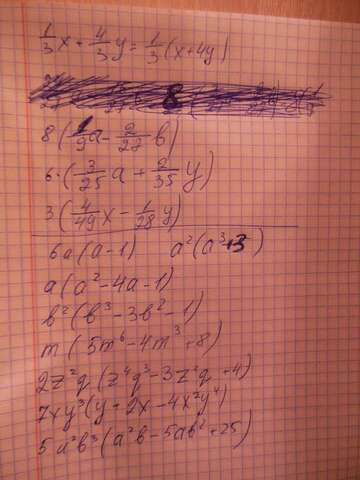 1/3 x + 4/3 y = 1/3 (x+4y)
8
8 (1/9 a - 2/27 b)
6·(3/25 a + 2/35 y)
3 (4/49 x - 1/28 y)
6a (a-1) a²(a³+3)
a (a²-4a-1)
b² (b³-3b²-1)
m (5m⁶-4m³+8)
2z²q (z⁴q³-3z²q+4)
7xy³(y+2x-4x²y⁴)
5a²b³(a²b-5ab²+25)